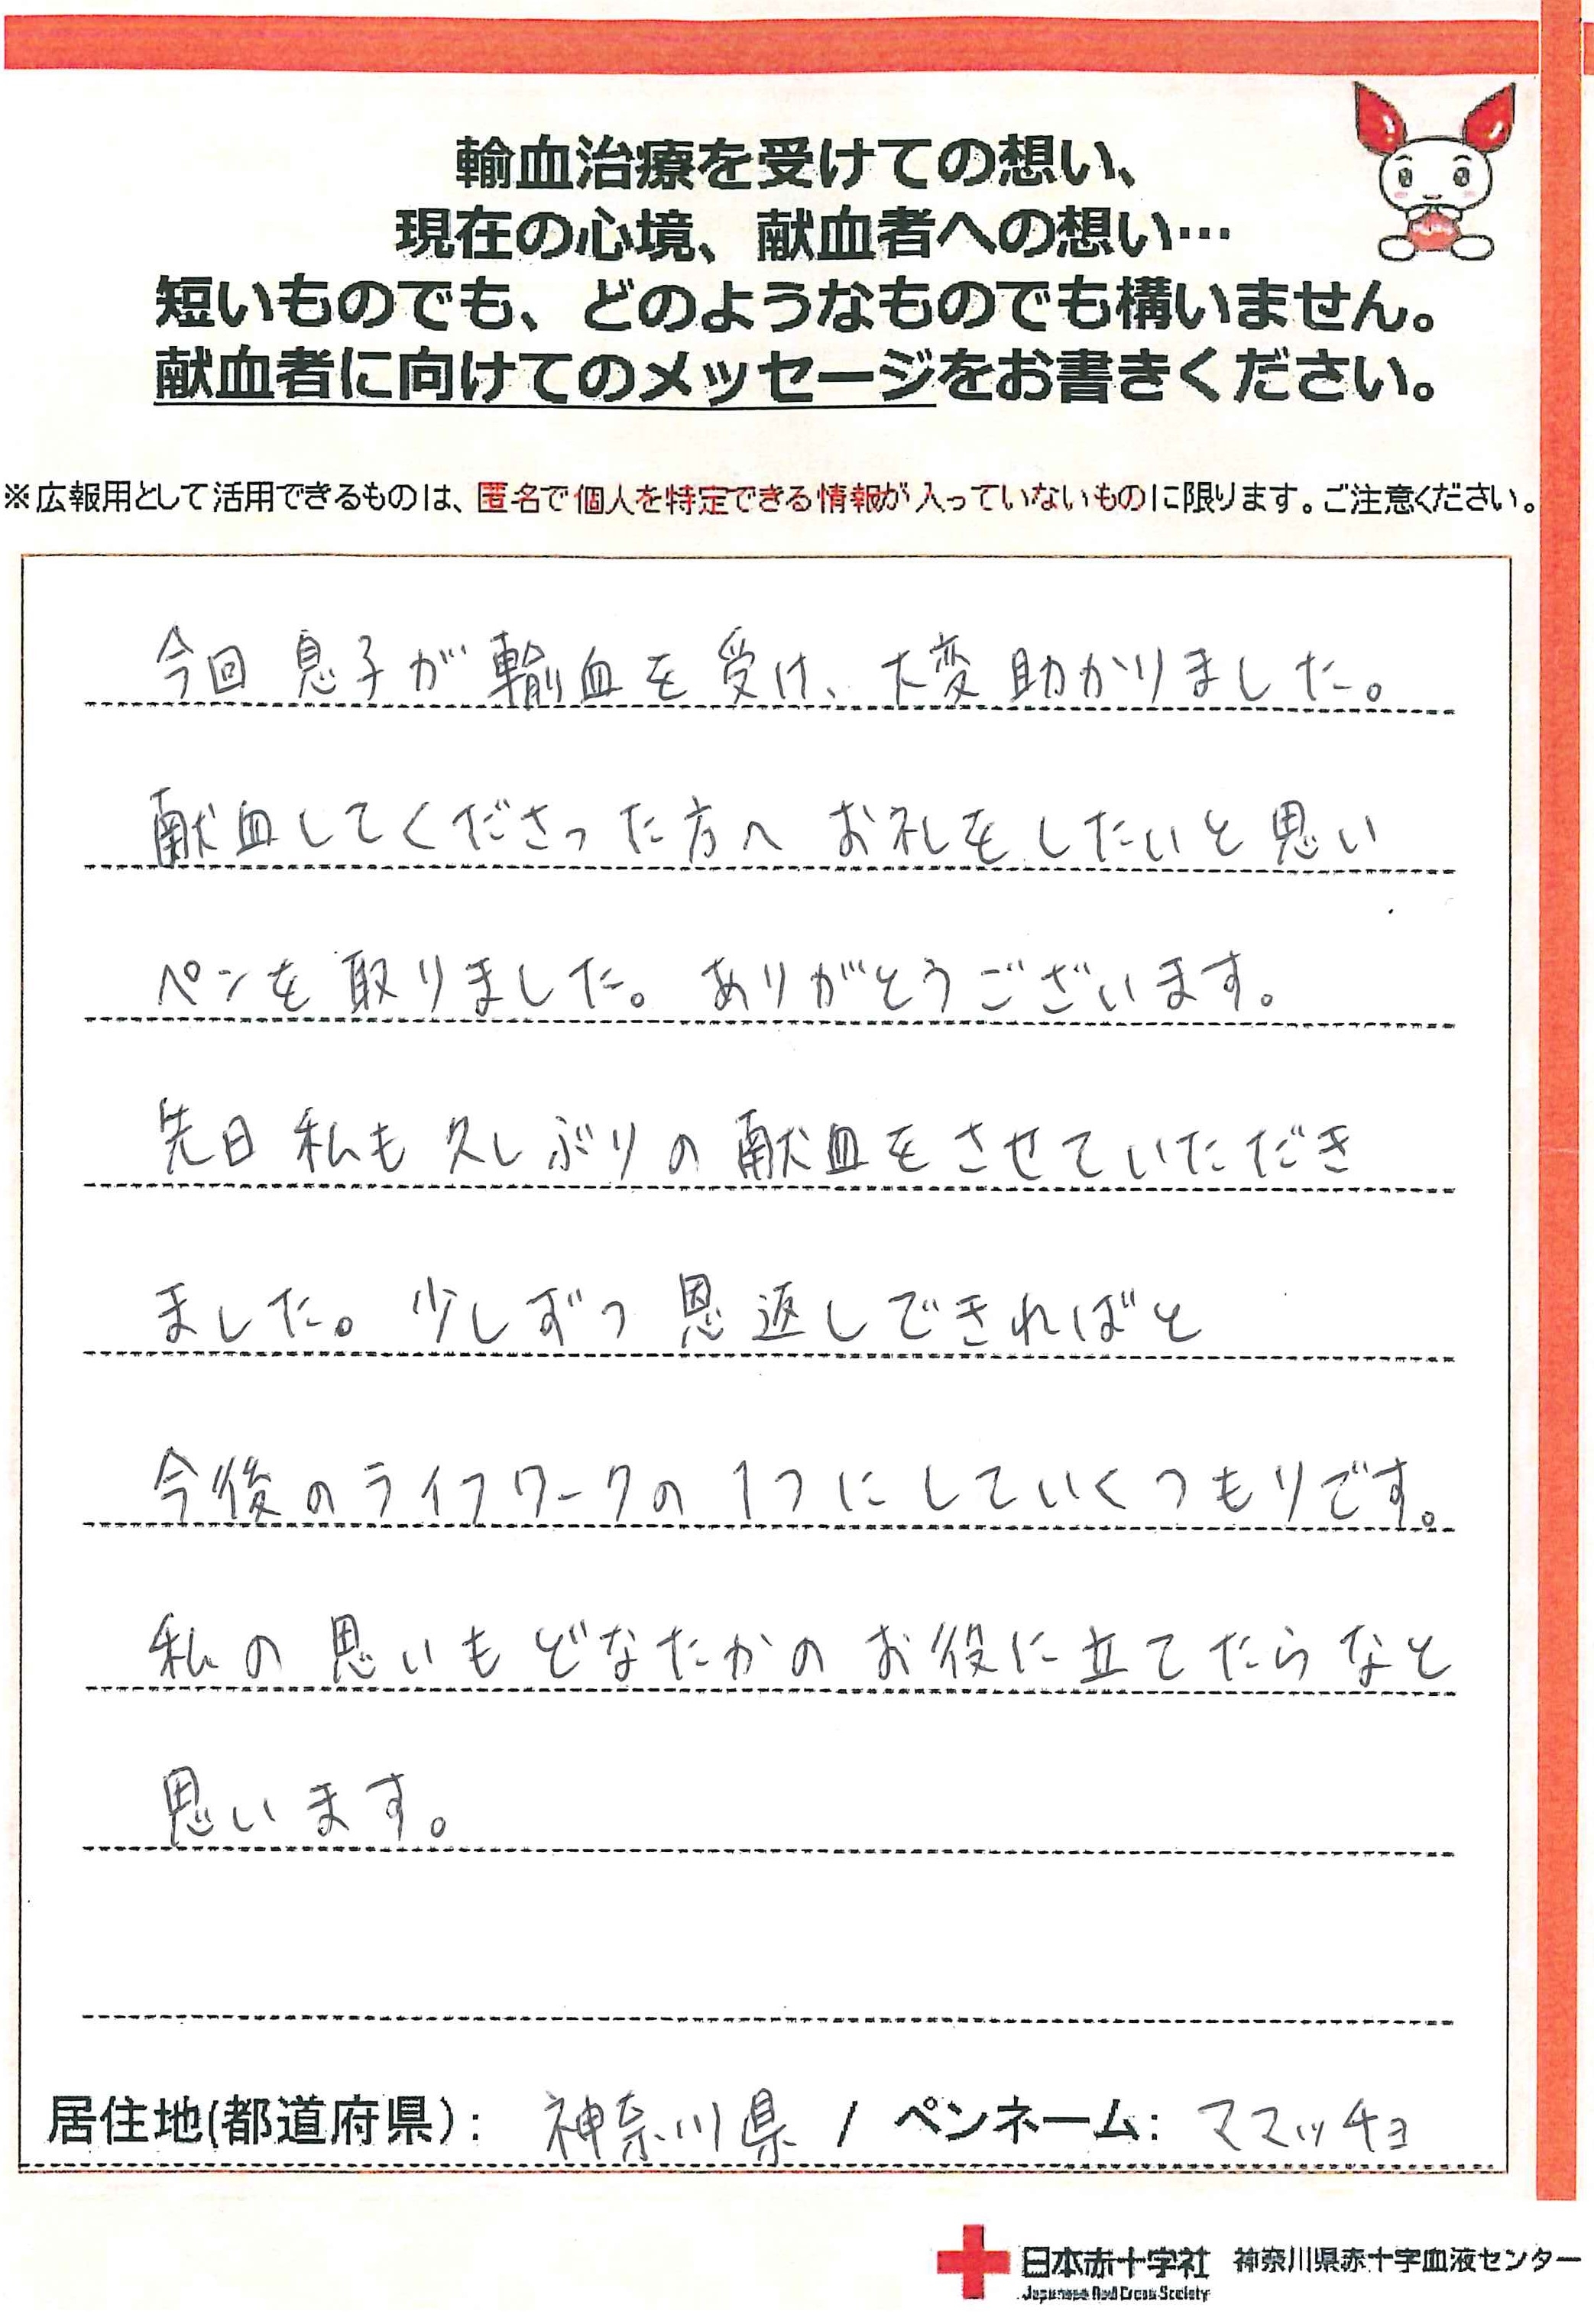 輸血治療を受けての想い、
現在の心境、献血者への想い…
短いものでも、どのようなものでも構いません。
献血者に向けてのメッセージをお書きください。
※広報用として活用できるものは、匿名で個人を特定できる情報が入っていないものに限ります。ご注意ください。
今回息子が輸血を受け、大変助かりました。
献血してくださった方へお礼をしたいと思い
ペンを取りました。ありがとうございます。
先日私も久しぶりの献血をさせていただき
ました。少しずつ恩返しできればと
今後のライフワークの1つにしていくつもりです。
私の思いもどなたかのお役に立てたらなと
思います。
居住地(都道府県): 神奈川県 / ペンネーム: ママッチョ
日本赤十字社 神奈川県赤十字血液センター
Japanese Red Cross Society